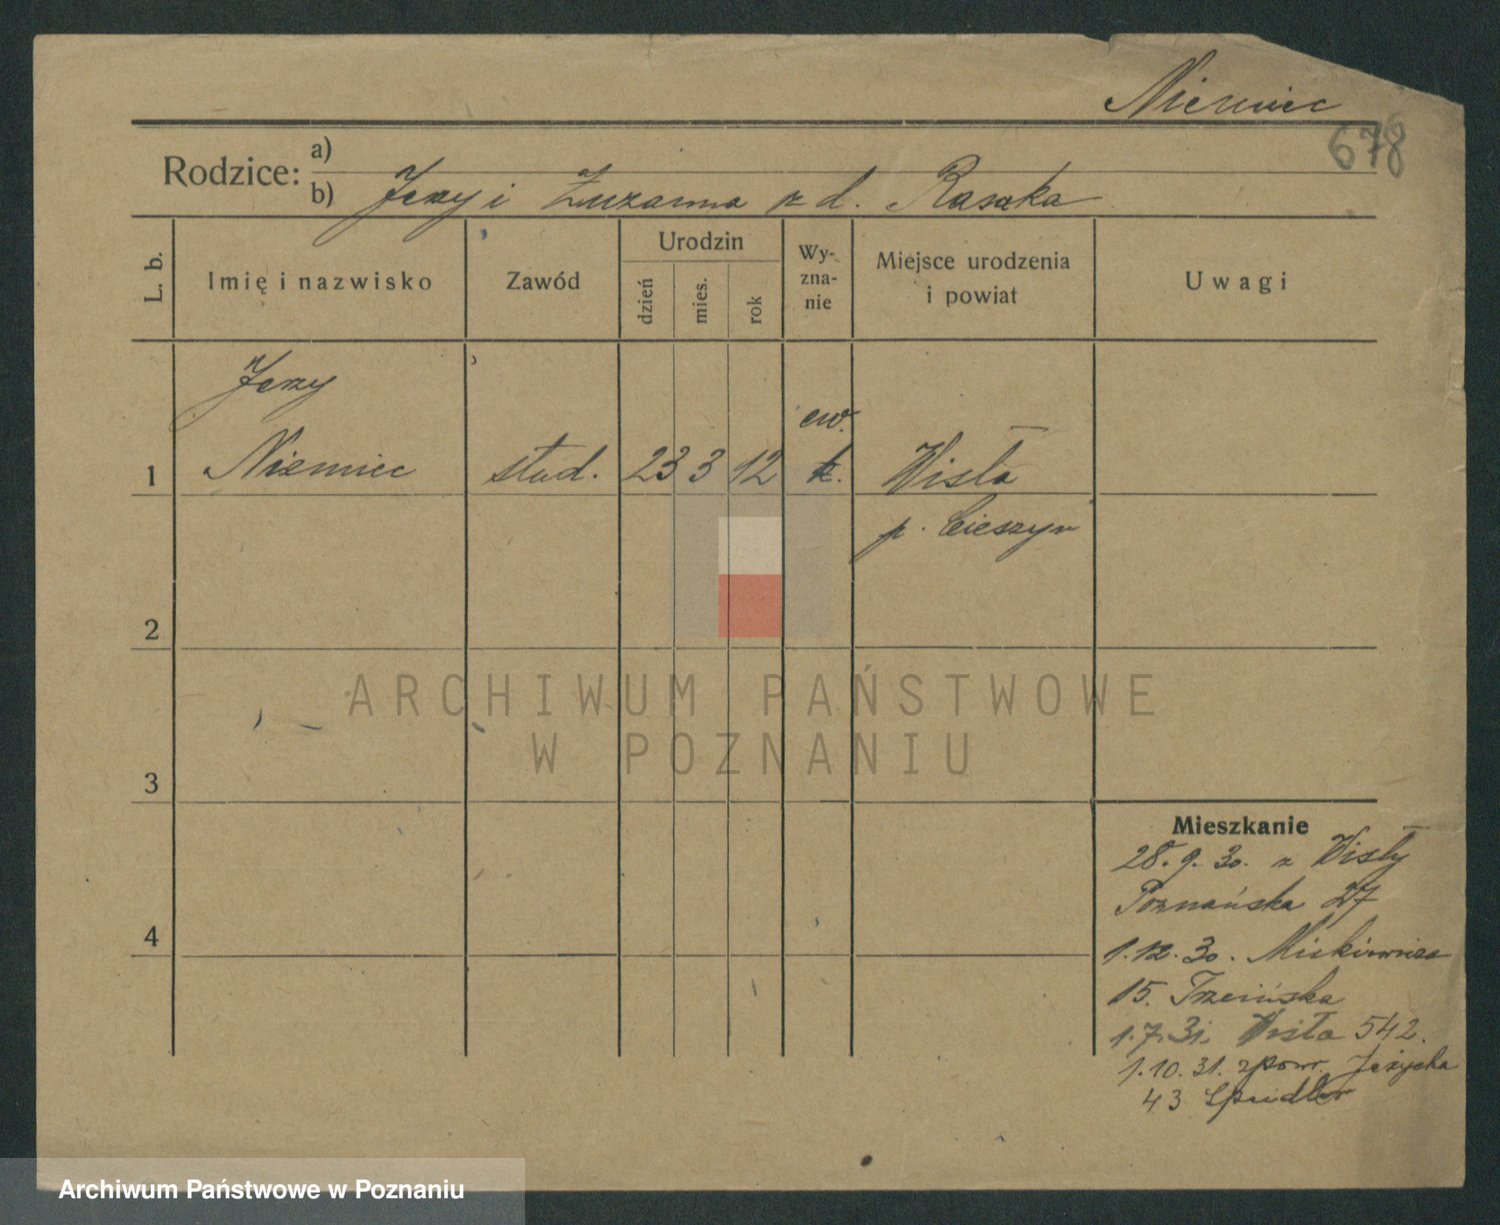 Niemiec
678
Rodzice: a)
b) Jerzy i Zuzanna z d. Raszka
L. b.
Imię i nazwisko
Zawód
Urodzin
dzień
mies.
rok
Wy-
zna-
nie
Miejsce urodzenia
i powiat
Uwagi
Jerzy
ew.
1 Niemiec stud. 23 3 12 k. Wisła
p. Cieszyn
2
3
4
Mieszkanie
28. 9. 30. z Wisły
Poznańska 27
1. 12. 30. Mickiewicza
15. Trzcińska
1. 7. 31. Wisła 542.
1. 10. 31. zpowr. Jeżycka
43
ARCHIWUM PAŃSTWOWE
W POZNANIU
Archiwum Państwowe w Poznaniu